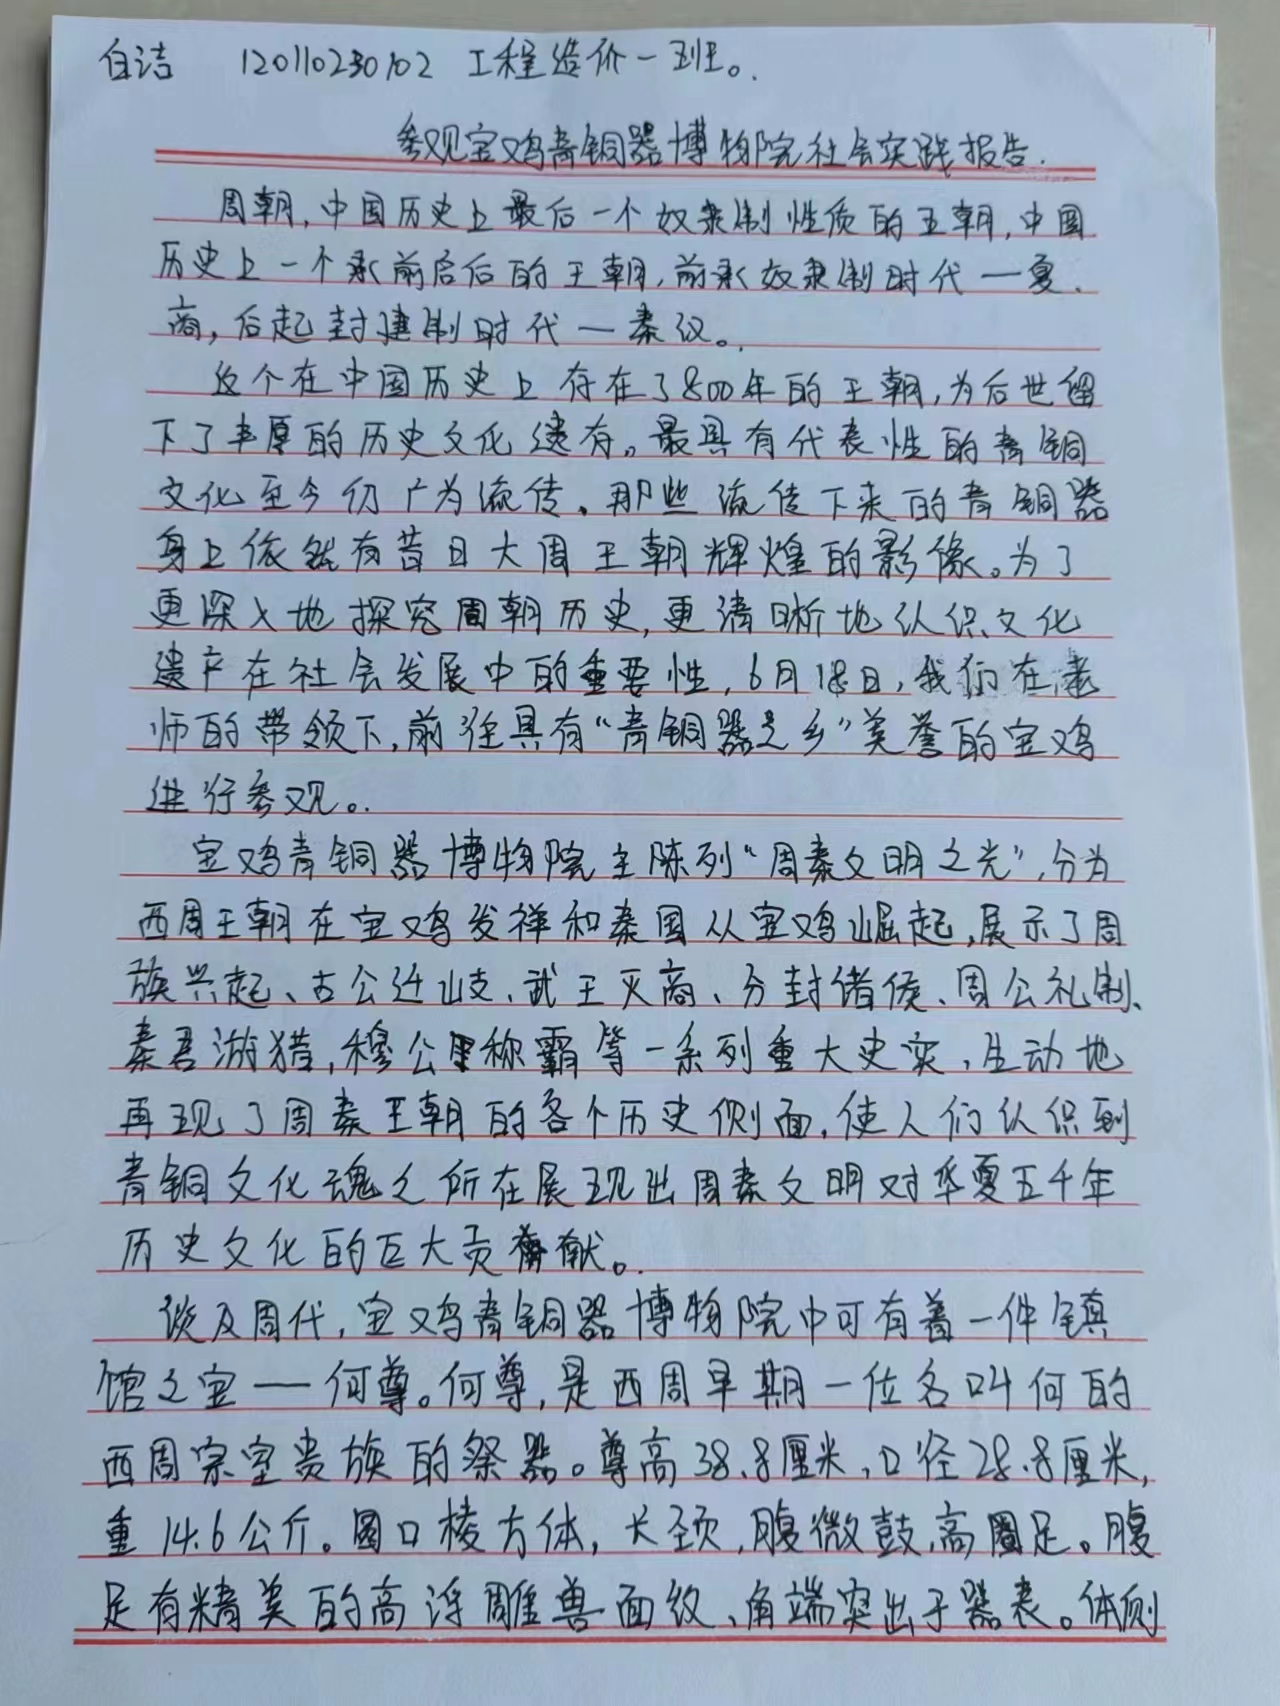 白洁 120110230102 工程造价一班。
参观宝鸡青铜器博物院社会实践报告.
周朝,中国历史上最后一个奴隶制性质的王朝,中国
历史上一个承前启后的王朝,前承奴隶制时代—夏、
商,后起封建制时代—秦汉。
这个在中国历史上存在了800年的王朝,为后世留
下了丰厚的历史文化遗存。最具有代表性的青铜
文化至今仍广为流传。那些流传下来的青铜器
身上依然有昔日大周王朝辉煌的影像。为了
更深入地探究周朝历史,更清晰地认识文化
遗产在社会发展中的重要性,6月18日,我们在老
师的带领下,前往具有“青铜器之乡”美誉的宝鸡
进行参观。
宝鸡青铜器博物院主陈列“周秦文明之光”,分为
西周王朝在宝鸡发祥和秦国从宝鸡崛起,展示了周
族兴起、古公迁岐、武王灭商、分封诸侯、周公礼制、
秦君游猎,穆公称霸等一系列重大史实,生动地
再现了周秦王朝的各个历史侧面,使人们认识到
青铜文化魂之所在展现出周秦文明对华夏五千年
历史文化的巨大贡献。
谈及周代,宝鸡青铜器博物院中可有着一件镇
馆之宝——何尊。何尊,是西周早期一位名叫何的
西周宗室贵族的祭器。尊高38.8厘米,口径28.8厘米,
重14.6公斤。圆口棱方体,长颈,腹微鼓,高圈足。腹
足有精美的高浮雕兽面纹、角端突出于器表。体侧